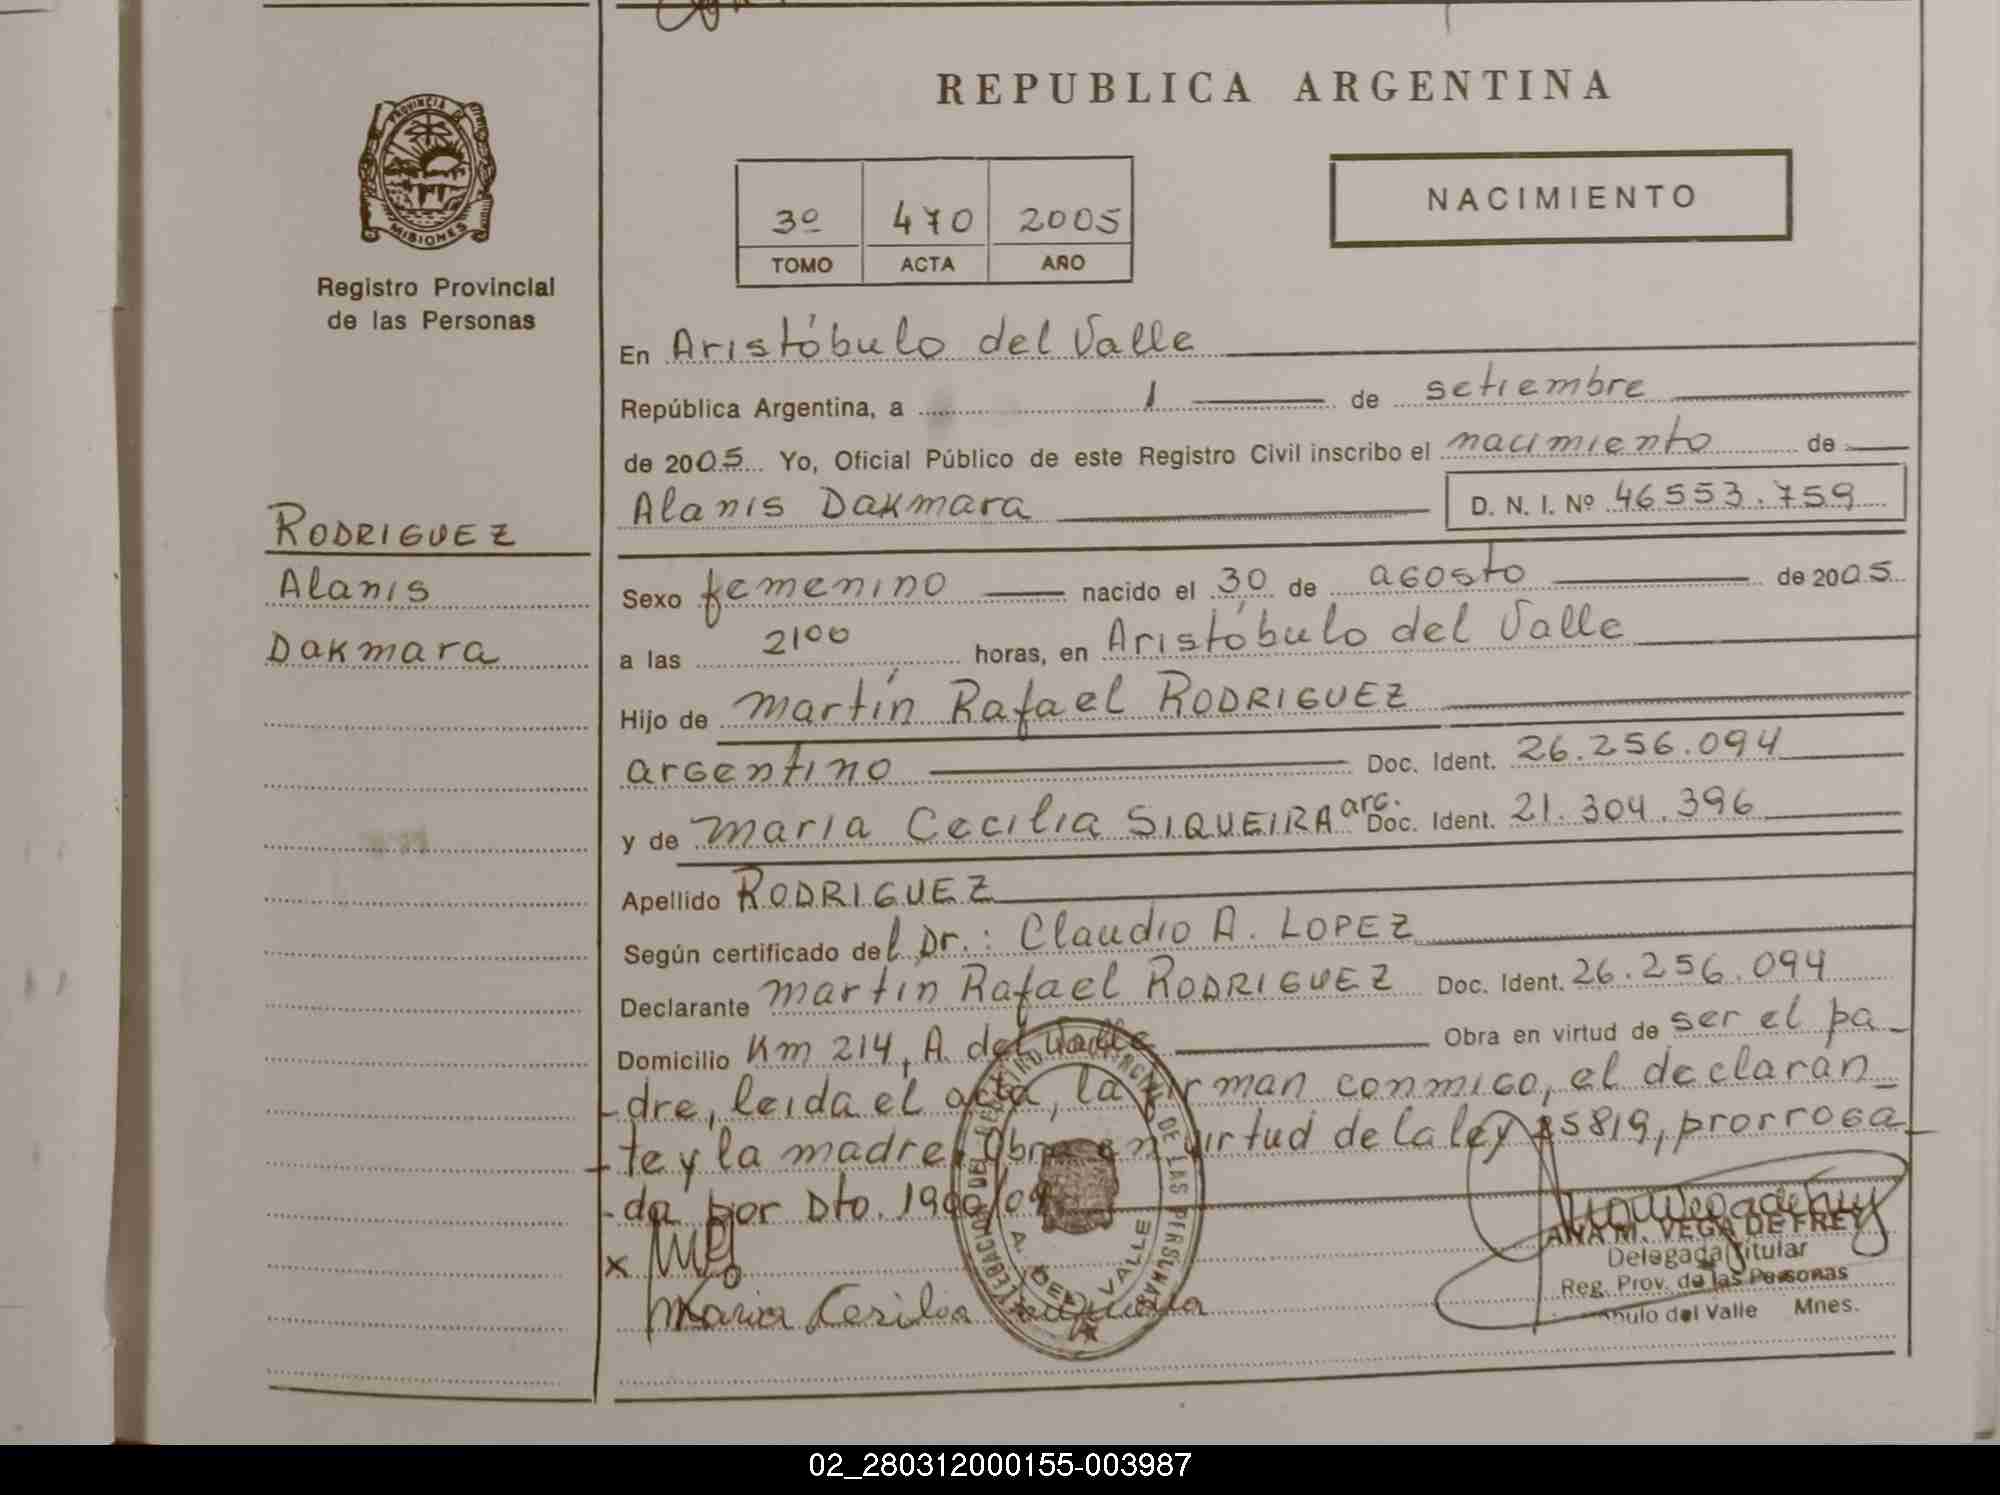 REPUBLICA ARGENTINA
PROVINCIA
MISIONES
Registro Provincial
de las Personas
3º 470 2005
TOMO ACTA AÑO
NACIMIENTO
En Aristóbulo del Valle
República Argentina, a 1 de setiembre
de 2005 Yo, Oficial Público de este Registro Civil inscribo el nacimiento de
Alanis Dakmara D. N. I. Nº 46553.759
RODRIGUEZ
Alanis
Dakmara
Sexo femenino nacido el 30 de agosto de 2005
a las 2100 horas, en Aristóbulo del Valle
Hijo de Martín Rafael RODRIGUEZ
argentino Doc. Ident. 26.256.094
y de Maria Cecilia SIQUEIRA arg. Doc. Ident. 21.304.396
Apellido RODRIGUEZ
Según certificado del Dr.: Claudio A. LOPEZ
Declarante Martin Rafael RODRIGUEZ Doc. Ident. 26.256.094
Domicilio Km 214, A. del Valle Obra en virtud de ser el pa_
_dre, leida el acta, la firman conmigo, el declaran_
_te y la madre. Obra en virtud de la ley 25819, prorroga
_da por Dto. 1900/04
x
Maria Cecilia
DE LAS PERSONAS
A. DEL VALLE
ANA M. VEGA DE FREY
Delegada Titular
Reg. Prov. de las Personas
del Valle Mnes.
02_280312000155-003987